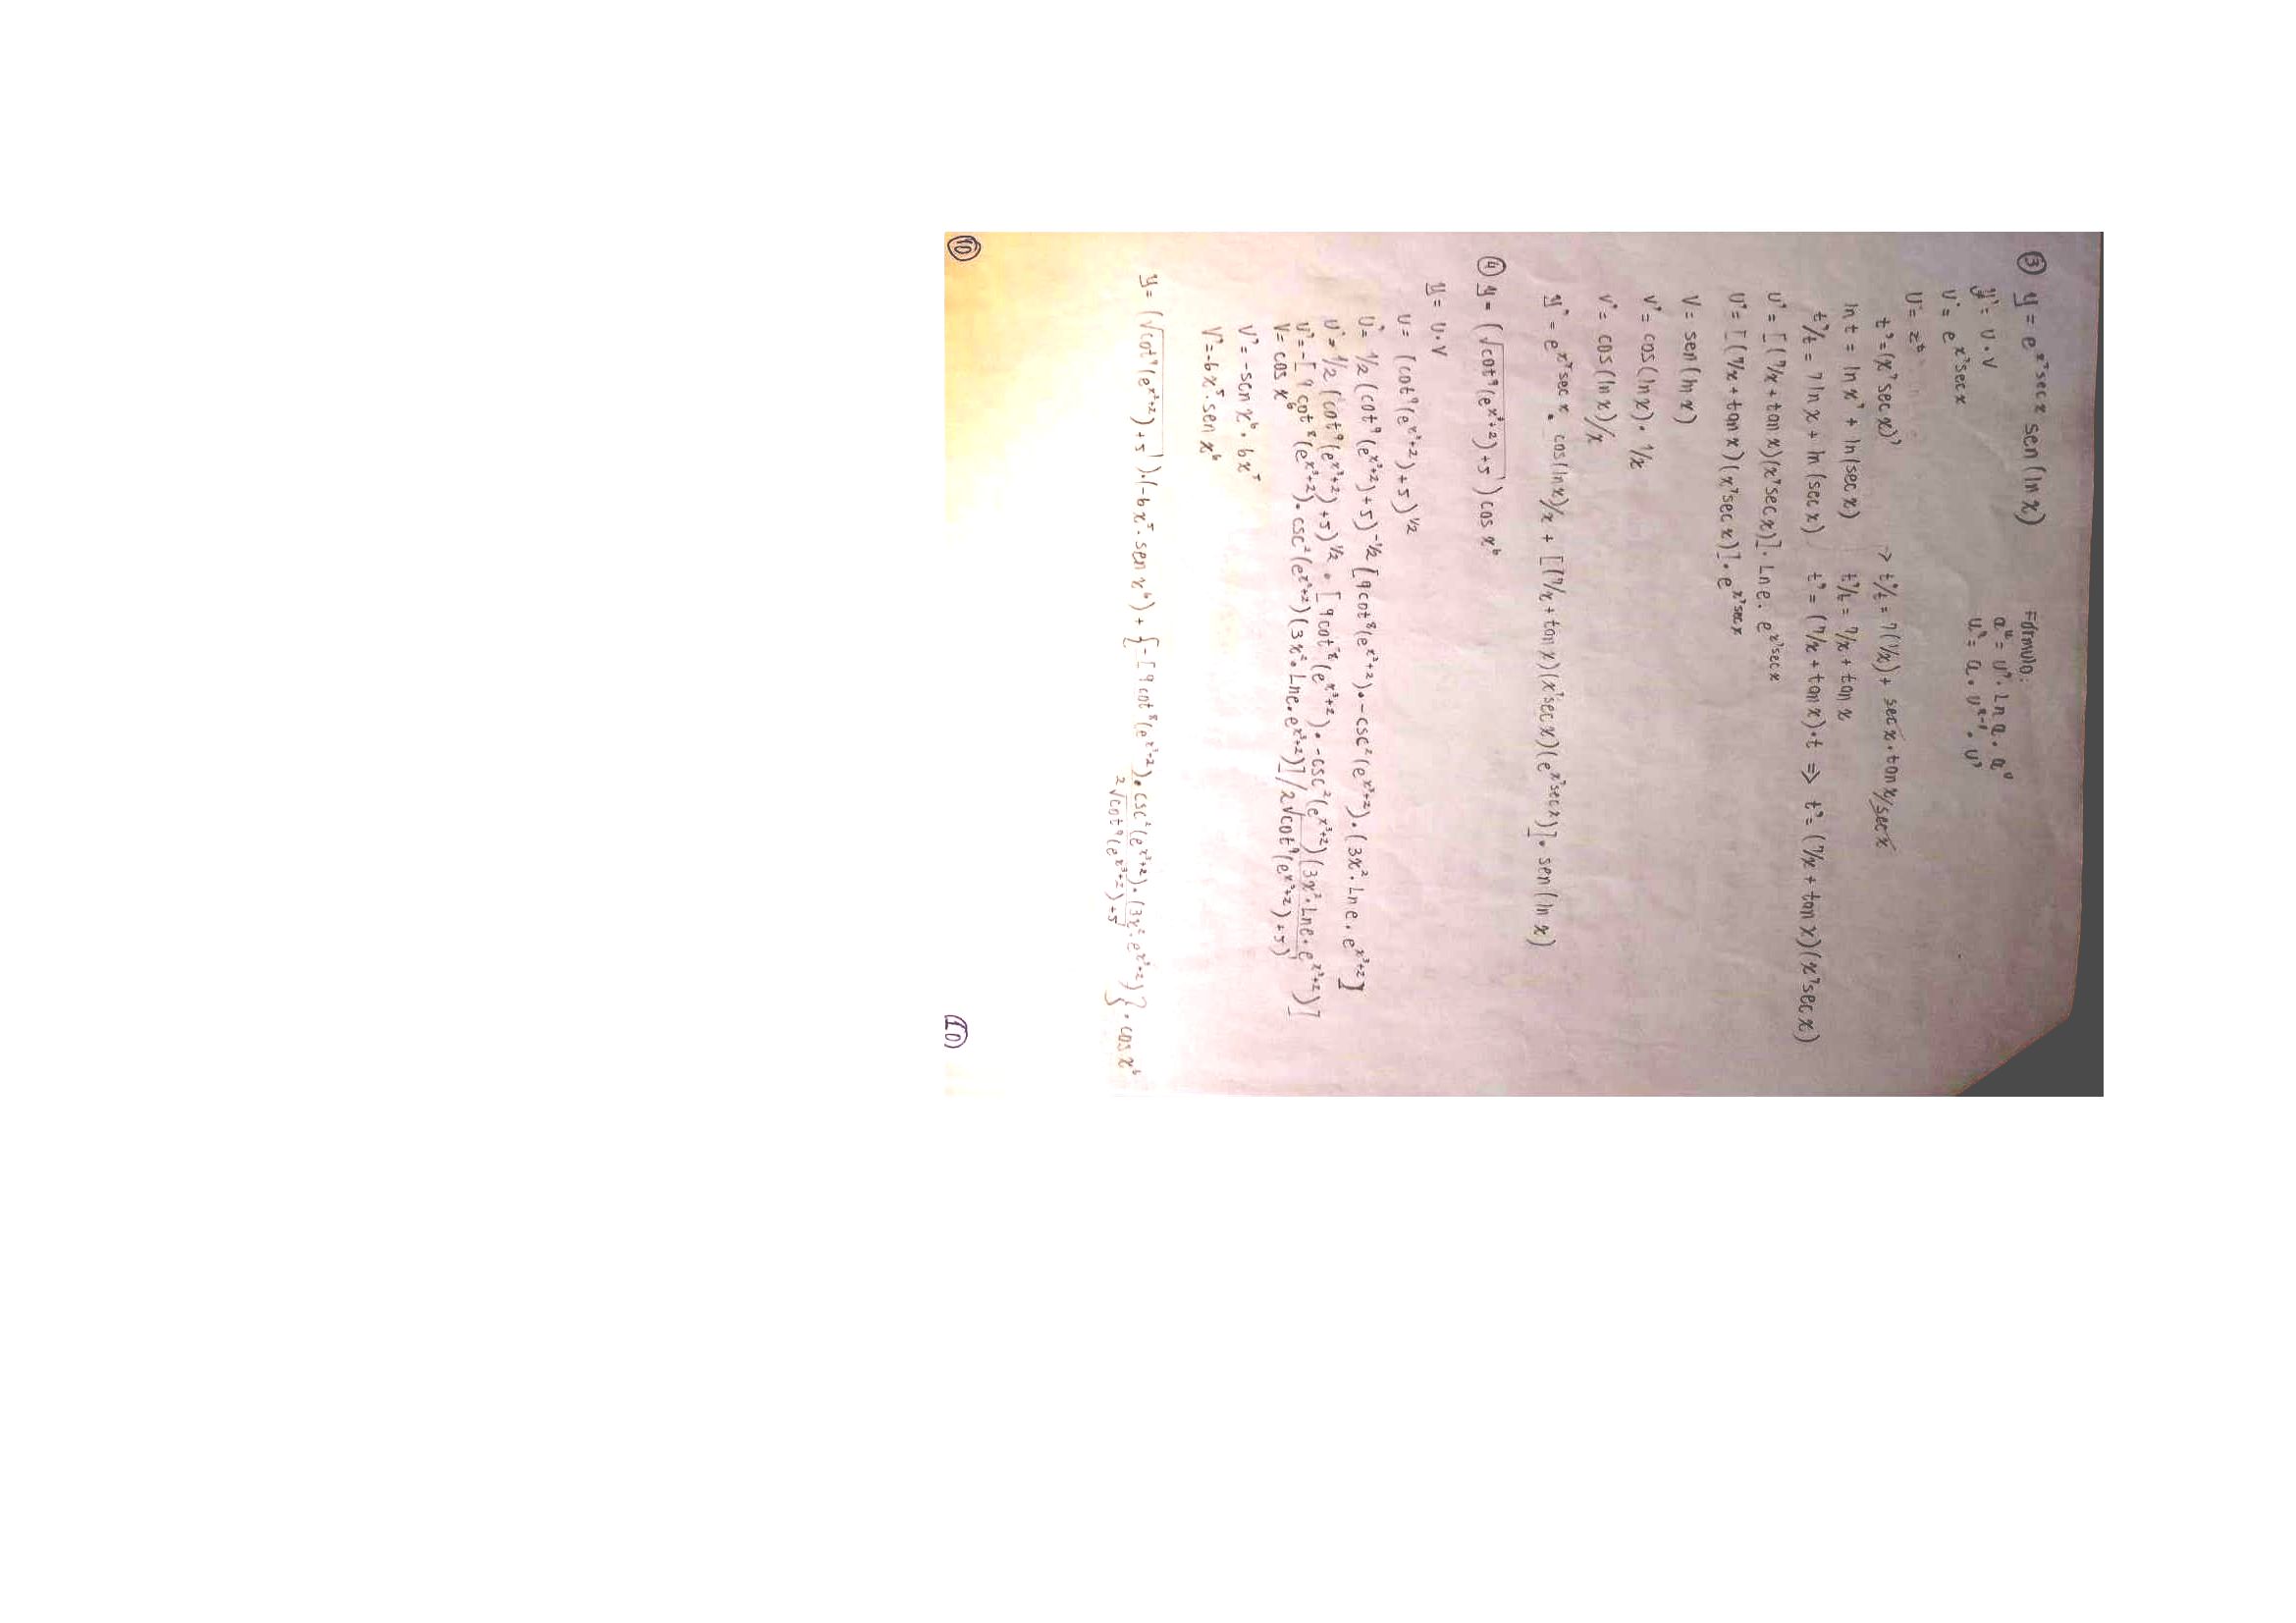 ③ y = e^{x⁷ sec x} sen (ln x)
Fórmula:
y' = U · V
a^u = U' · Ln a · a^u
U^a = a · U^{a-1} · U'
U = e^{x⁷ sec x}
U = z^t
t' = (x⁷ sec x)' → t'/t = 7(1/x) + sec x · tan x/sec x
ln t = ln x⁷ + ln (sec x) t'/t = 7/x + tan x
t'/t = 7 ln x + ln (sec x) t' = (7/x + tan x) · t ⇒ t' = (7/x + tan x)(x⁷ sec x)
U' = [(7/x + tan x)(x⁷ sec x)] · Ln e · e^{x⁷ sec x}
U' = [(7/x + tan x)(x⁷ sec x)] · e^{x⁷ sec x}
V = sen (ln x)
V' = cos (ln x) · 1/x
V' = cos (ln x)/x
y' = e^{x⁷ sec x} · cos (ln x)/x + [(7/x + tan x)(x⁷ sec x)(e^{x⁷ sec x})] · sen (ln x)
④ y = (√(cot⁹(e^{x³+2}) + 5)) cos x⁶
y = U · V
U = (cot⁹(e^{x³+2}) + 5)^{1/2}
U' = 1/2 (cot⁹(e^{x³+2}) + 5)^{-1/2} [9 cot⁸(e^{x³+2}) · -csc²(e^{x³+2}) · (3x² · Ln e · e^{x³+2}]
U' = 1/2 (cot⁹(e^{x³+2}) + 5)^{1/2} · [9 cot⁸(e^{x³+2}) · -csc²(e^{x³+2})(3x² · Ln e · e^{x³+2})]
U' = -[9 cot⁸(e^{x³+2}) · csc²(e^{x³+2})(3x² · Ln e · e^{x³+2})]/2√(cot⁹(e^{x³+2}) + 5)
V = cos x⁶
V' = -sen x⁶ · 6x⁵
V' = -6x⁵ · sen x⁶
y = (√(cot⁹(e^{x³+2}) + 5)) · (-6x⁵ · sen x⁶) + {-[9 cot⁸(e^{x³+2}) · csc²(e^{x³+2}) · (3x² · e^{x³+2}) / 2√(cot⁹(e^{x³+2}) + 5)} · cos x⁶
⑩ ⑩